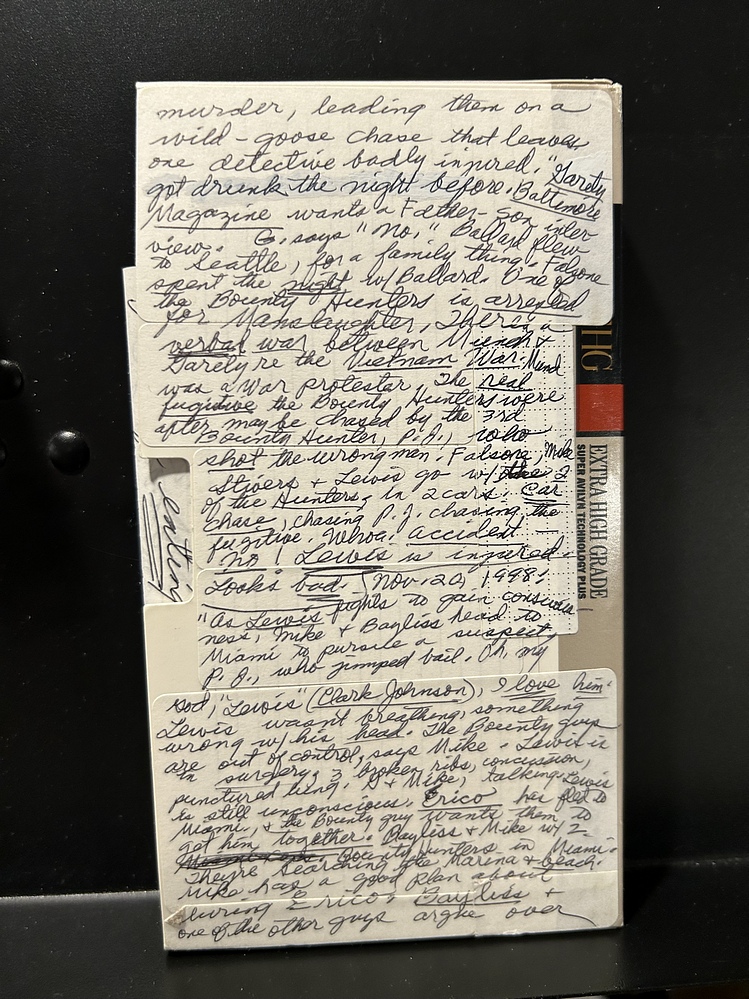 murder, leading them on a
wild-goose chase that leaves
one detective badly injured." Garety
got drunk the night before. Baltimore
Magazine wants a Father-son inter
view. G. says "No," Ballard flew
to Seattle, for a family thing. Falsone
spent the night w/Ballard. One of
the Bounty Hunters is arrested
for Manslaughter, There's a
verbal war between Munch &
Garety re the Vietnam War. Mund
was a War protester. The real
fugitive the Bounty Hunters were
after may be chased by the 3rd
Bounty Hunter, P.J., who
shot the wrong man. Falsone, Mike
Stivers & Lewis go w/ 2
of the Hunters, in 2 cars. Car
Chase, chasing P.J. chasing the
fugitive. Whoa! accident
No! Lewis is injured.
Looks bad. (Nov. 20, 1998:
"As Lewis fights to gain conscious-
ness, Mike & Bayliss head to
Miami to pursue a suspect,
P.J., who jimped bail. Oh, my
God, "Lewis" (Clark Johnson), I love him.
Lewis wasn't breathing, something
wrong w/ his head. The Bounty guys
are out of control, says Mike. Lewis is
in surgery, 3 broken ribs, concussion,
punctured lung. G & Mike, talking. Lewis
is still unconscious. Erico has fled to
Miami, & the Bounty guy wants them to
get him together. Bayliss & Mike w/ 2
Bounty Hunters in Miami.
They're searching the Marina & beach.
Mike has a good plan about
luring Erico. Bayliss &
one of the other guys argue over
entity
HG
EXTRA HIGH GRADE
SUPER AVILYN TECHNOLOGY PLUS